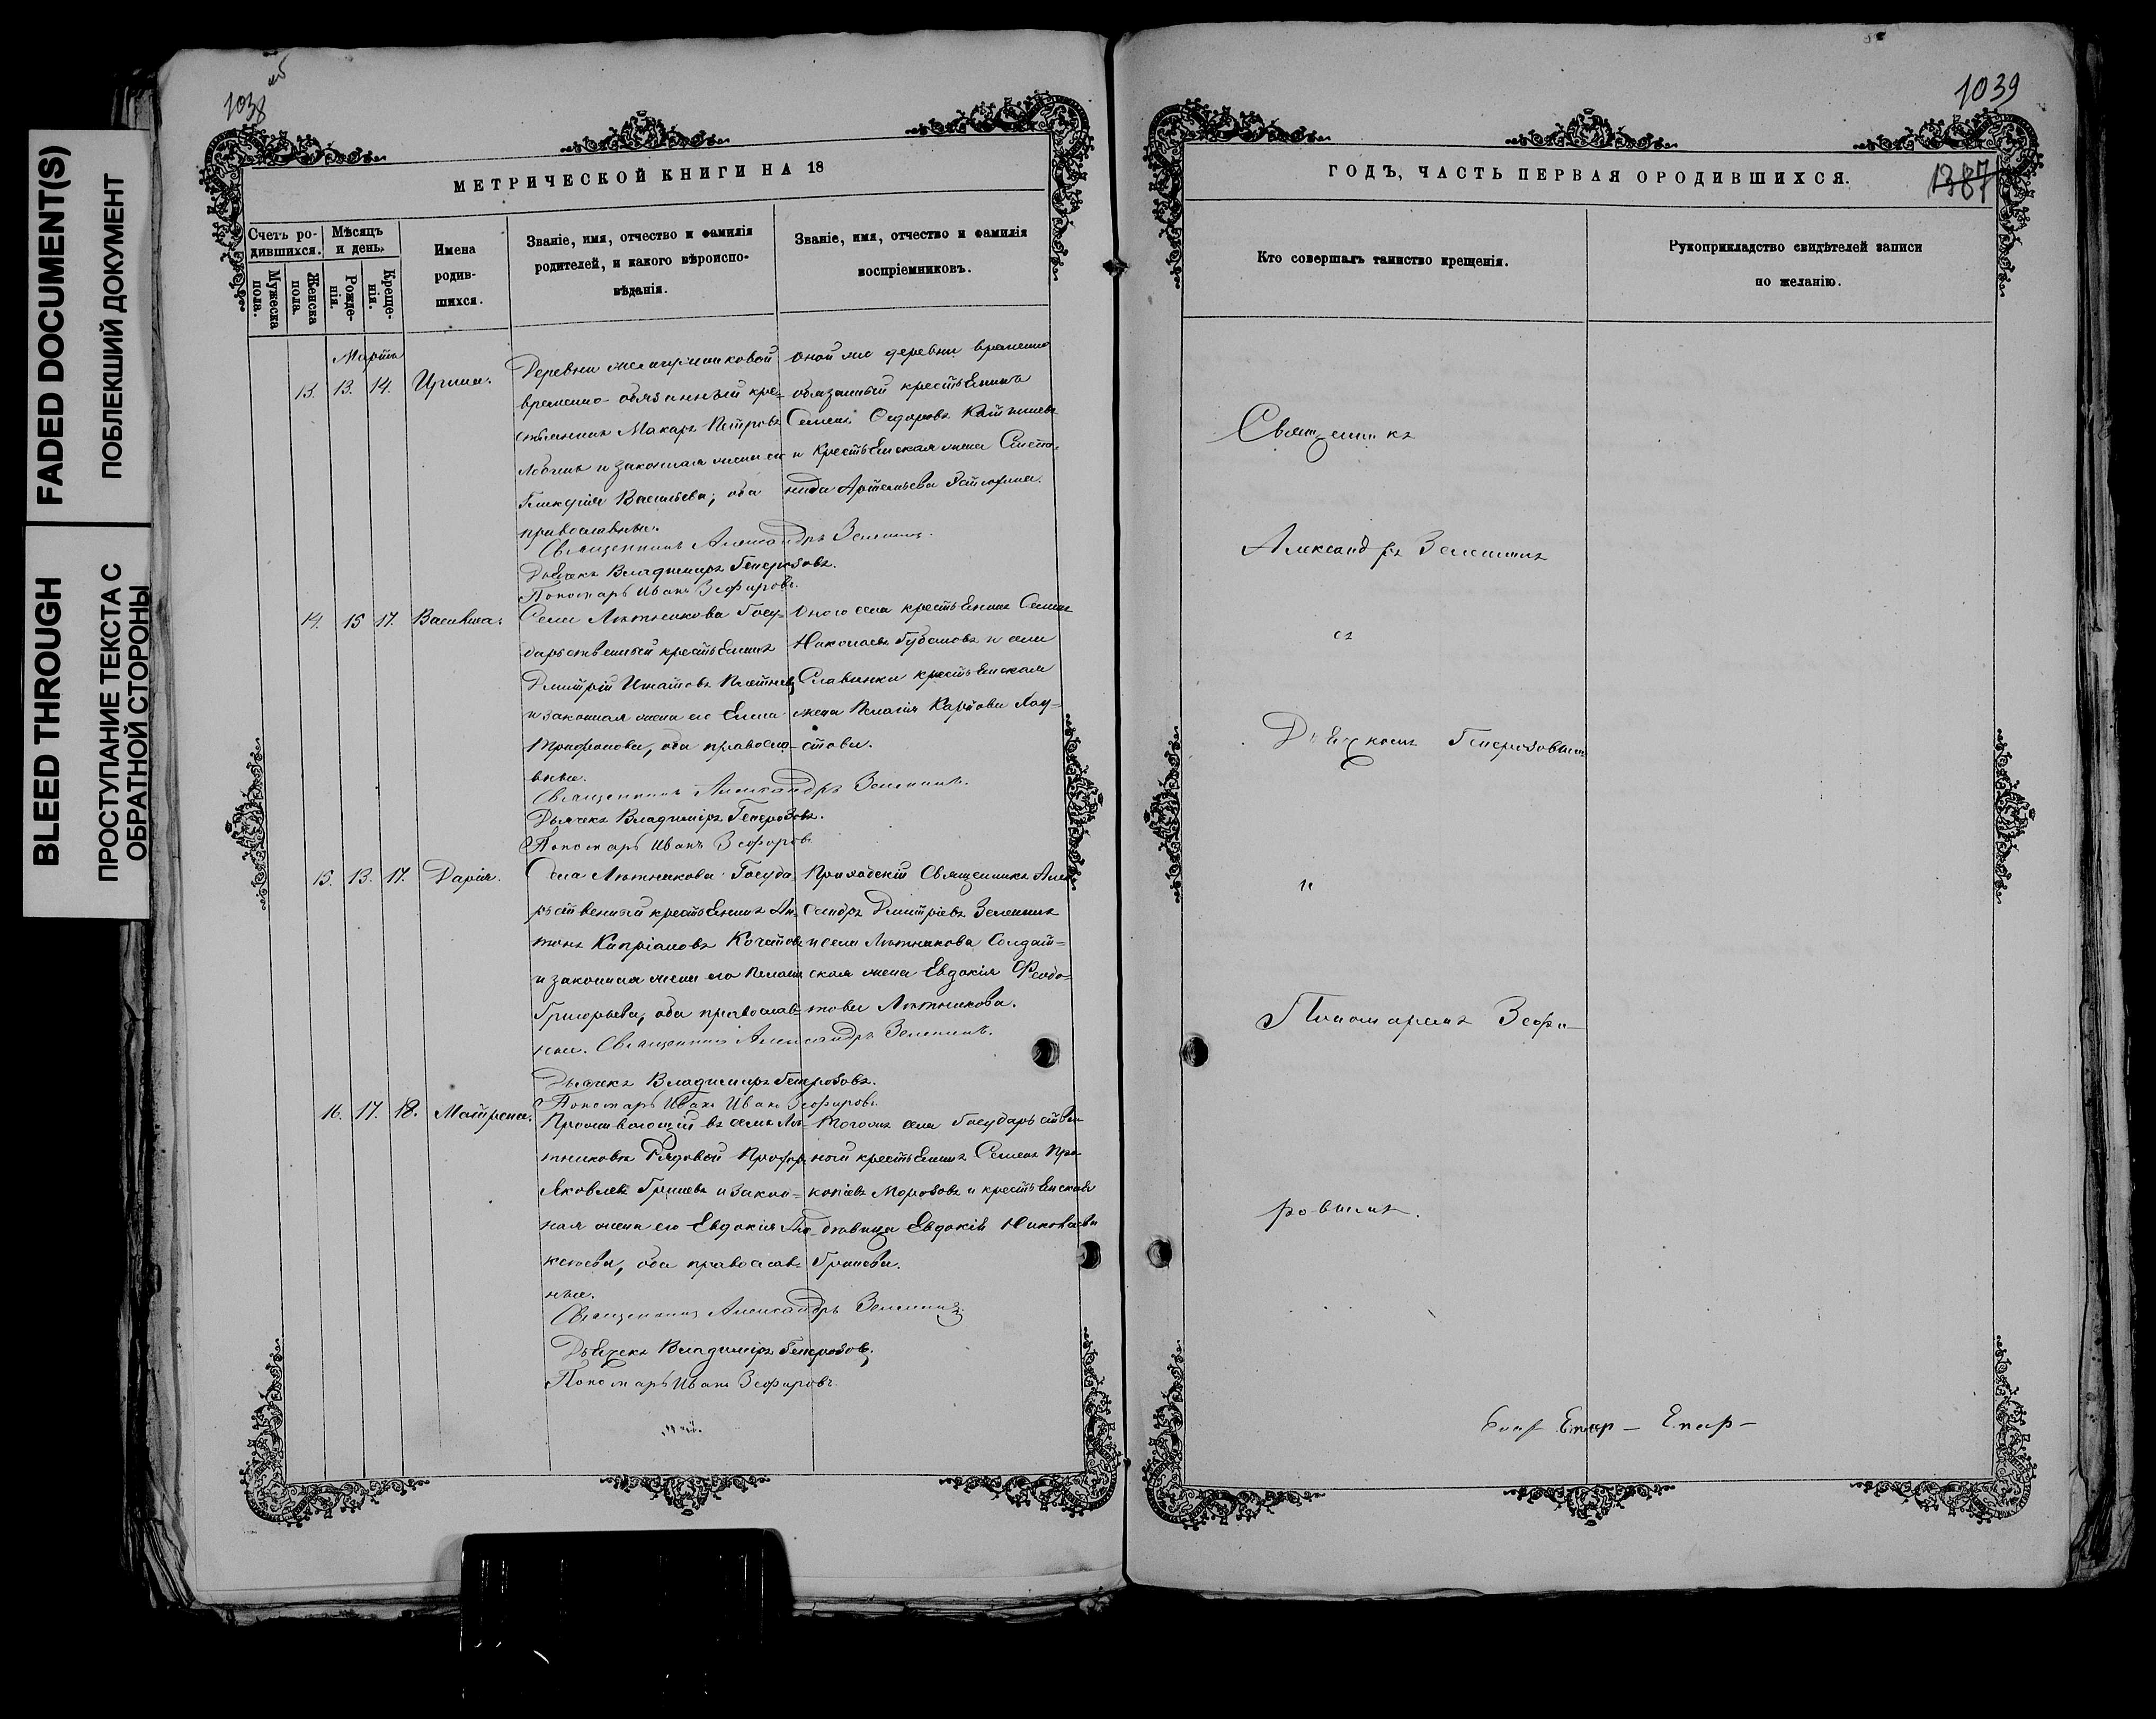 FADED DOCUMENT(S)
ПОБЛЕКШИЙ ДОКУМЕНТ
BLEED THROUGH
ПРОСТУПАНИЕ ТЕКСТА С
ОБРАТНОЙ СТОРОНЫ
1038
об
МЕТРИЧЕСКОЙ КНИГИ НА 18
Счетъ ро-
дившихся.
Мѣсяцъ
и день.
Мужеска
пола.
Женска
пола.
Рожде-
нія.
Креще-
нія.
Имена
родив-
шихся.
Званіе, имя, отчество и фамилія
родителей, и какого вѣроиспо-
вѣданія.
Званіе, имя, отчество и фамилія
воспріемниковъ.
Мартъ
13. 13. 14. Ирина.
Деревни
временно-обязанный кре-
стьянинъ Макаръ Петровъ
и законная жена его
Гликерія Васильева, оба
православные.
Священникъ Александръ Зеленинъ.
Дьячекъ Владиміръ Генерозовъ.
Пономарь Иванъ Зефировъ.
Оной же деревни временно
обязанный крестьянинъ
Семенъ Сидоровъ
и крестьянская жена Степа-
нида Артемьева Устюгина.
14. 15 17. Василиса.
Села Лѣтникова Госу-
дарственный крестьянинъ
Дмитрій Игнатовъ
и законная жена его Елена
Трифонова, оба правосла-
вные.
Священникъ Александръ Зеленинъ.
Дьячекъ Владиміръ Генерозовъ.
Пономарь Иванъ Зефировъ
Оного села крестьянинъ Семенъ
Николаевъ Губановъ и села
Славинки крестьянская
жена Пелагія Карпова
стова.
15. 13. 17. Дарія.
Села Лѣтникова Госуда
рственный крестьянинъ Ан-
тонъ Кипріановъ Кочетовъ
и законная жена его Пелагія
Григорьева, оба православ-
ные. Священникъ Александръ Зеленинъ.
Дьячекъ Владиміръ Генерозовъ.
Пономарь Иванъ Иванъ Зефировъ.
Приходскій Священникъ Алек
сандръ Дмитріевъ Зеленинъ
и села Лѣтникова Солдат=
ская жена Евдокія Федо-
това Лѣтникова.
16. 17. 18. Матрена.
Проживающій въ селѣ Лѣ-
тниковѣ Рядовой
Яковлевъ Грачевъ и закон=
ная жена его Евдокія
оба православ-
ные.
Священникъ Александръ Зеленинъ.
Дьячекъ Владиміръ Генерозовъ.
Пономарь Иванъ Зефировъ.
Тогоже села Государствен
ной крестьянинъ Семенъ Про
копіевъ Морозовъ и крестьянская
дѣвица Евдокія Николаева
Грачева.
1039
1387
ГОДЪ, ЧАСТЬ ПЕРВАЯ О РОДИВШИХСЯ.
Кто совершалъ таинство крещенія.
Рукоприкладство свидѣтелей записи
по желанію.
Священникъ
Александръ Зеленинъ
съ
Дьячкомъ Генерозовымъ
и
Пономаремъ Зефи-
ровымъ.